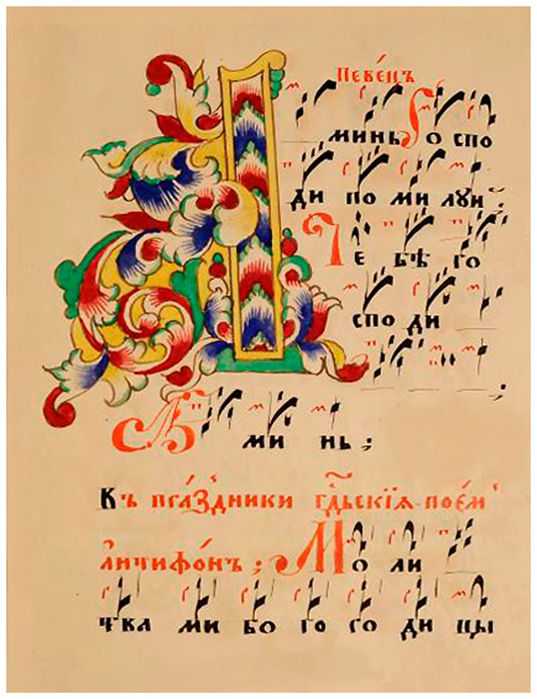 певе́нъ
минь го спо
ди по ми луи
Те бѣ го
спо ди ;
А ми нь ;
Къ пра́здники гдⷭ҇ьскїѧ пое́м
а҆нтифо́нъ ; Мо ли
тва ми бо го ро ди цы